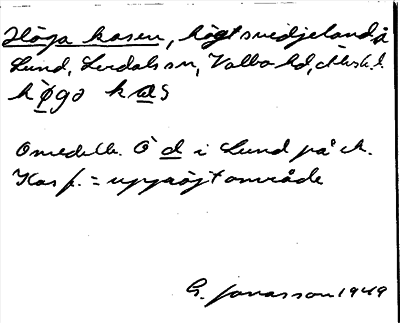 Höga kasen, högt svedjeland å
Lund, Lerdals sn, Valbo hd, Älvsb. l.
høga kas

Omedelb. Ö d i Lund på ek.
Kas f. = uppröjt område

G. Jonasson 1949